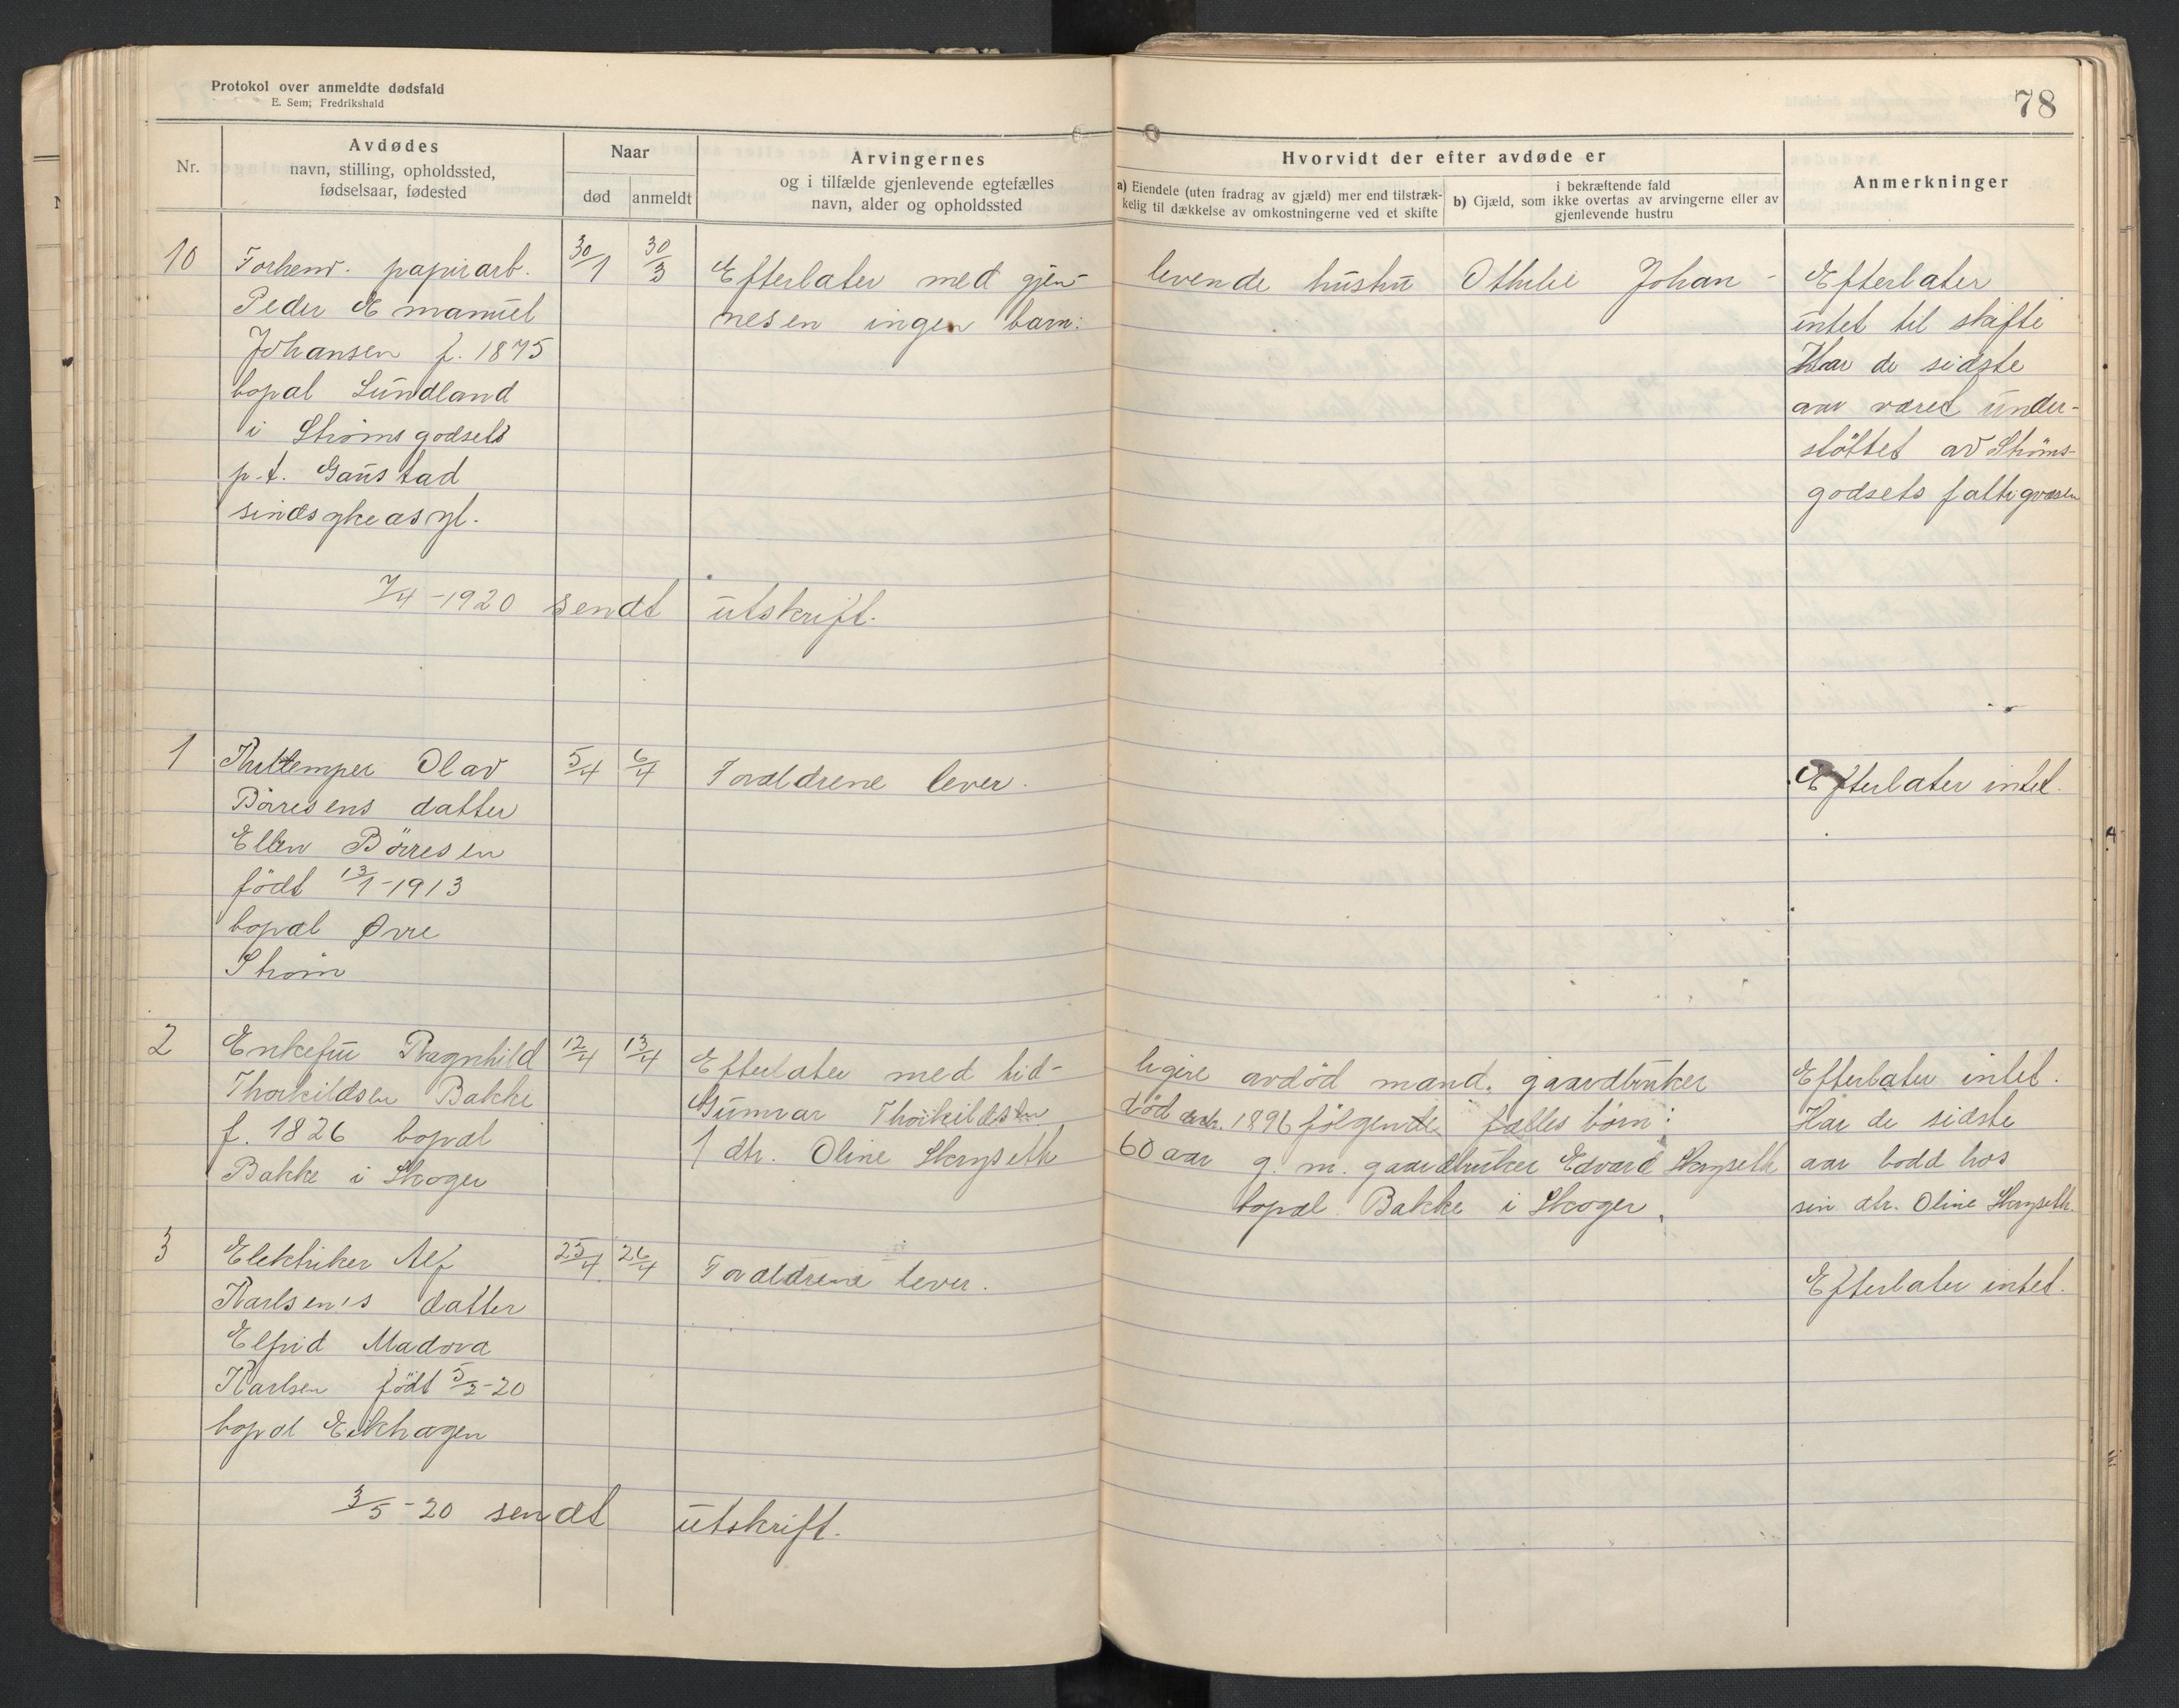 Protokol over anmeldte dødsfald
E. Sem; Fredrikshald
78
Nr.
Avdødes
navn, stilling, opholdssted,
fødselsaar, fødested
Naar
død
anmeldt
Arvingernes
og i tilfælde gjenlevende egtefælles
navn, alder og opholdssted
Hvorvidt der efter avdøde er
a) Eiendele (uten fradrag av gjæld) mer end tilstræk-
kelig til dækkelse av omkostningerne ved et skifte
i bekræftende fald
b) Gjæld, som ikke overtas av arvingerne eller av
gjenlevende hustru
Anmerkninger
10 Forhenv. papirarb. 30/1 30/3 Efterlater med gjen- levende hustru Othilie Johan- Efterlater
Peder Emanuel nesen ingen barn: intet til skifte
Johansen f. 1875 Har de sidste
bopæl Sundland aar været under-
i Strømsgodsets støttet av Strøms-
p.t. Gaustad godsets fattigvæsen
sindsykeasyl.
7/4-1920 sendt utskrift.
1 Olav 5/4 6/4 Forældrene lever. Efterlater intet.
Börresens datter
Ellen Börresen
födt 13/1-1913
bopæl Øvre
Strøm
2 Enkefru Ragnhild 12/4 13/4 Efterlater med tid- ligere avdöd mand, gaardbruker Efterlater intet.
Thorkildsen Bakke Gunnar Thorkildsen död 1896 fölgende fælles börn: Har de sidste
f. 1826 bopæl 1 dtr. Oline Skryseth 60 aar g. m. gaardbruker Edvard Skryseth aar bodd hos
Bakke i Skoger bopæl Bakke i Skoger. sin dtr. Oline Skryseth.
3 Elektriker Alf 25/4 26/4 Forældrene lever. Efterlater intet.
Karlsen's datter
Elfrid Madova
Karlsen födt 5/2-20
bopæl Eikhagen
3/5-20 sendt utskrift.